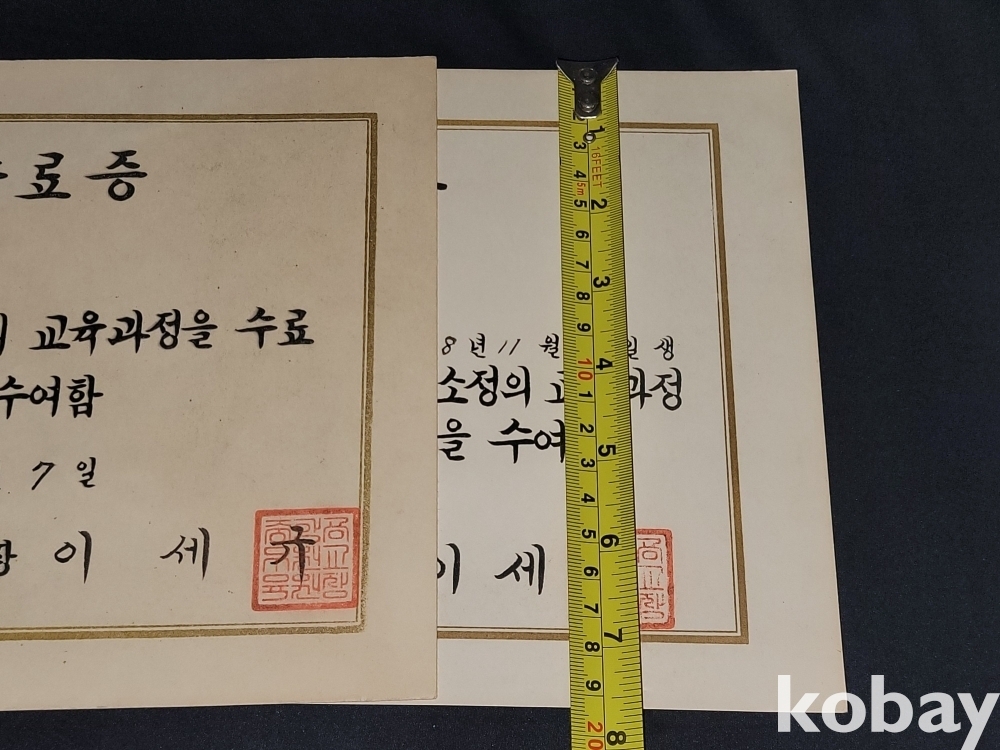 료증
교육과정을 수료
수여함
7일
이 세 규
8년 11월 일생
소정의 과정
을 수여
이 세
16FEET
5m
1 2 3 4 5 6 7 8
3 4 5 6 7 8 9 10 1 2 3 4 5 6 7 8 9 20
kobay